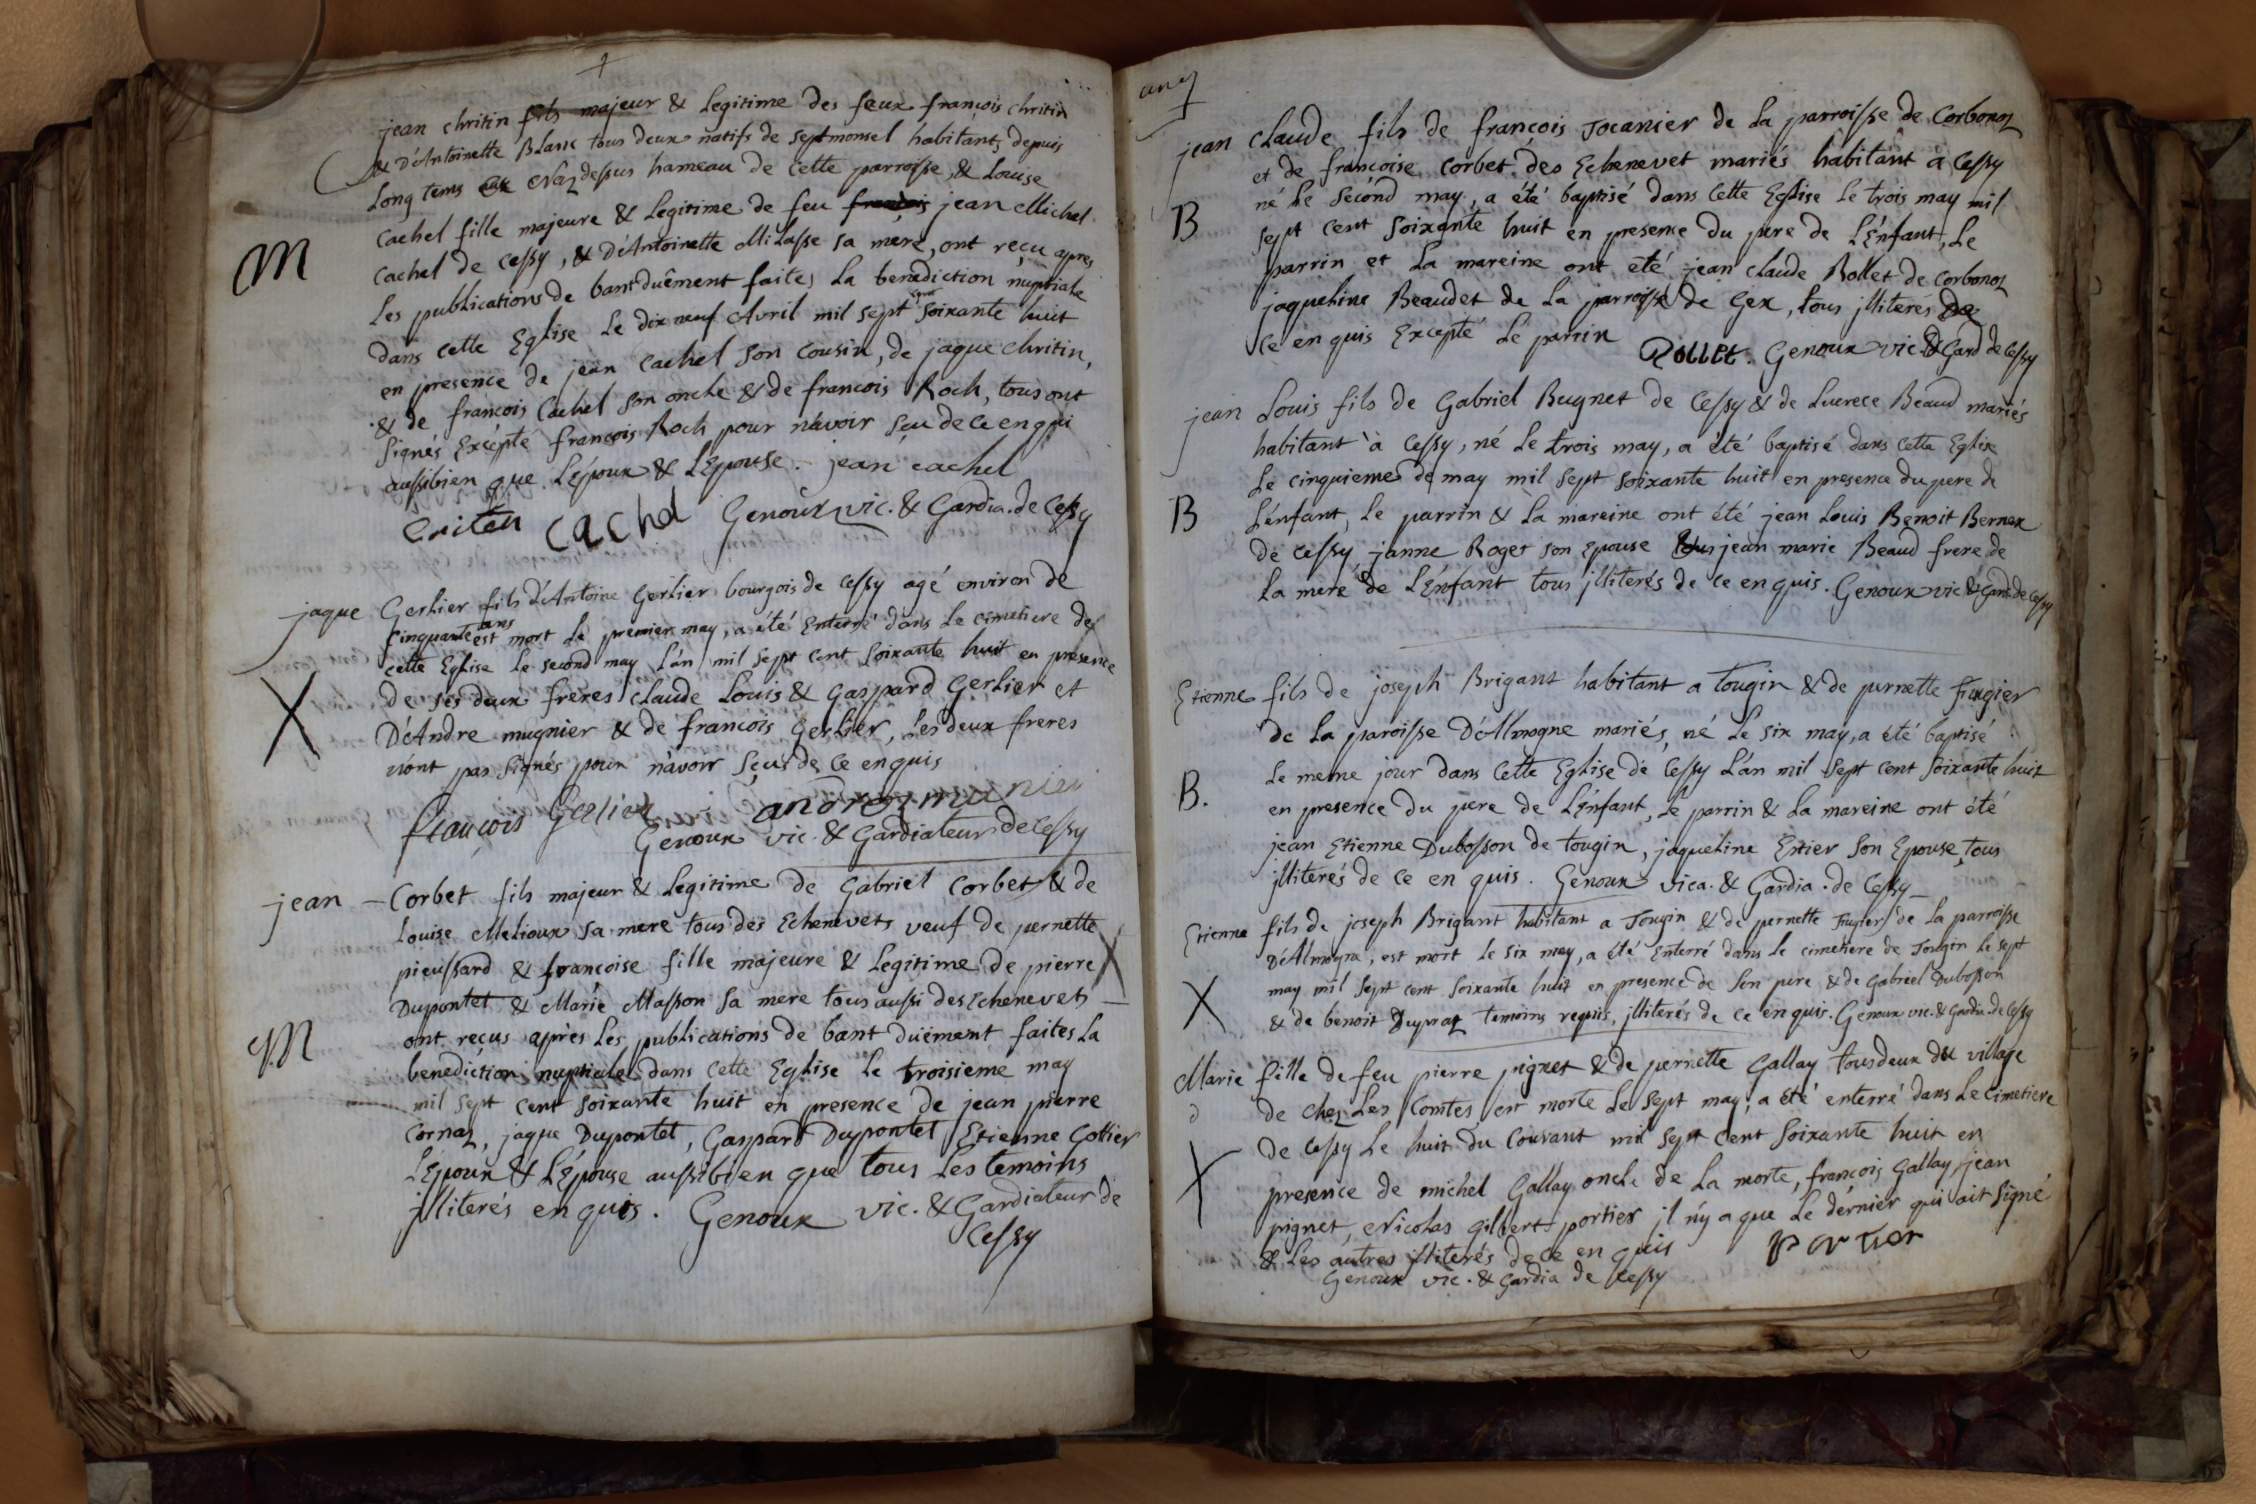 jean chritin fils majeur & legitime des feux françois chritin
& D'Antoinette Blanc tous deux natifs de septmonsel habitants depuis
Long tems Naz dessus hameau de cette parroisse, & Louise
Cachel fille majeure & Legitime de feu françois jean Michel
Cachel de Cessy, & D'Antoinette Milasse sa mere, ont reçu apres
Les publications de bant duêment faites La benediction nuptiale
M
dans cette Eglise Le dix neuf Avril mil sept cent soixante huit
en presence de jean Cachel son cousin, de jaque chritin,
& de francois Cachel son oncle & de francois Roch, tous ont
signés Excépté francois Roch pour n'avoir sçu de ce enqui
aussibien que L'époux & L'Epouse. jean cachel
Criten Cachel Genoux vic. & Gardia. de Cessy
jaque Gerlier fils d'Antoine Gerlier bourgois de Cessy agé environ de
Cinquante ans est mort Le premier may, a été Enterré dans Le cimetiere de
cette Eglise Le second may L'an mil sept cent soixante huit en presence
X de ses deux freres claude Louis & Gaspard Gerlier et
D'Andre mugnier & de francois Gerlier, Les deux freres
n'ont pas signés pour n'avoir sçus de ce enquis
françois Gerlier andre munier
Genoux vic. & Gardiateur de Cessy
jean Corbet fils majeur & Legitime de Gabriel Corbet & de
Louise Melioux sa mere tous des Echenevets veuf de pernette
pieussard & francoise fille majeure & Legitime de pierre X
Dupontet & Marie Masson sa mere tous aussi des Echenevets
M ont reçus après Les publications de bant duëment faites La
benediction nuptiale dans cette Eglise Le troisieme may
mil sept cent soixante huit en presence de jean pierre
Cornaz, jaque Dupontet, Gaspard Dupontet Etienne Gottier
L'Epoux & L'Epouse aussibien que tous Les temoins
jlliterés enquis. Genoux vic. & Gardiateur de
Cessy
jean Claude fils de françois Jocanier de La parroisse de Corbonoz
et de francoise Corbet des Echenevet mariés habitant à Cessy
né Le Second may, a été baptisé dans cette Eglise Le trois may mil
B sept cent soixante huit en presence du pere de L'Enfant, Le
parrin et La mareine ont été jean claude Rollet de Corbonoz
jaqueline Beaudet de La parroisse de Gex, tous jlliterés De
Ce en quis Excepté Le parrin Rollet. Genoux vic. & Gard de Cessy
jean Louis fils de Gabriel Bugnet de Cessy & de Lucrece Beaud mariés
habitant à Cessy, né Le trois may, a été baptisé dans cette Eglise
Le cinquieme de may mil sept soixante huit en presence du pere de
B L'enfant, Le parrin & La mareine ont été jean Louis Benoit Bernex
de Cessy janne Roget son Epouse jean marie Beaud frere de
La mere de L'Enfant tous jlliterés de ce en quis. Genoux vic & Gard. de Cessy
Etienne fils de joseph Brigant habitant a tougin & de pernette fingier
de La paroisse D'Almogne mariés, né Le six may, a été baptisé
Le meme jour dans cette Eglise de Cessy L'an mil sept cent soixante huit
B. en presence du pere de L'Enfant, Le parrin & La mareine ont été
jean Etienne Dubosson de tougin, jaqueline Ersier son Epouse, tous
jlliterés de ce en quis. Genoux vica. & Gardia. de Cessy
Etienne fils de joseph Brigant habitant a Tougin & de pernette de La parroisse
D'Almogna, est mort Le six may, a été Enterré dans Le cimetiere de Tougin Le sept
X may mil sept cent soixante huit en presence de son pere & de Gabriel Dubosson
& de benoit Dupraz temoins requis, jlliterés de ce en quis. Genoux vic. & Gardia. de Cessy
Marie fille de feu pierre pignet & de pernette Gallay tous deux du village
de chez Les Comtes est morte Le sept may, a été enterré dans Le cimetiere
X de Cessy Le huit du Courant mil sept cent soixante huit en
presence de michel Gallay oncle de La morte, francois Gallay, jean
pignet, Nicolas Gilbert portier il n'y a que Le dérnier qui ait signé
& Les autres jlliterés de ce en quis Portier
Genoux vic. & Gardia de Cessy